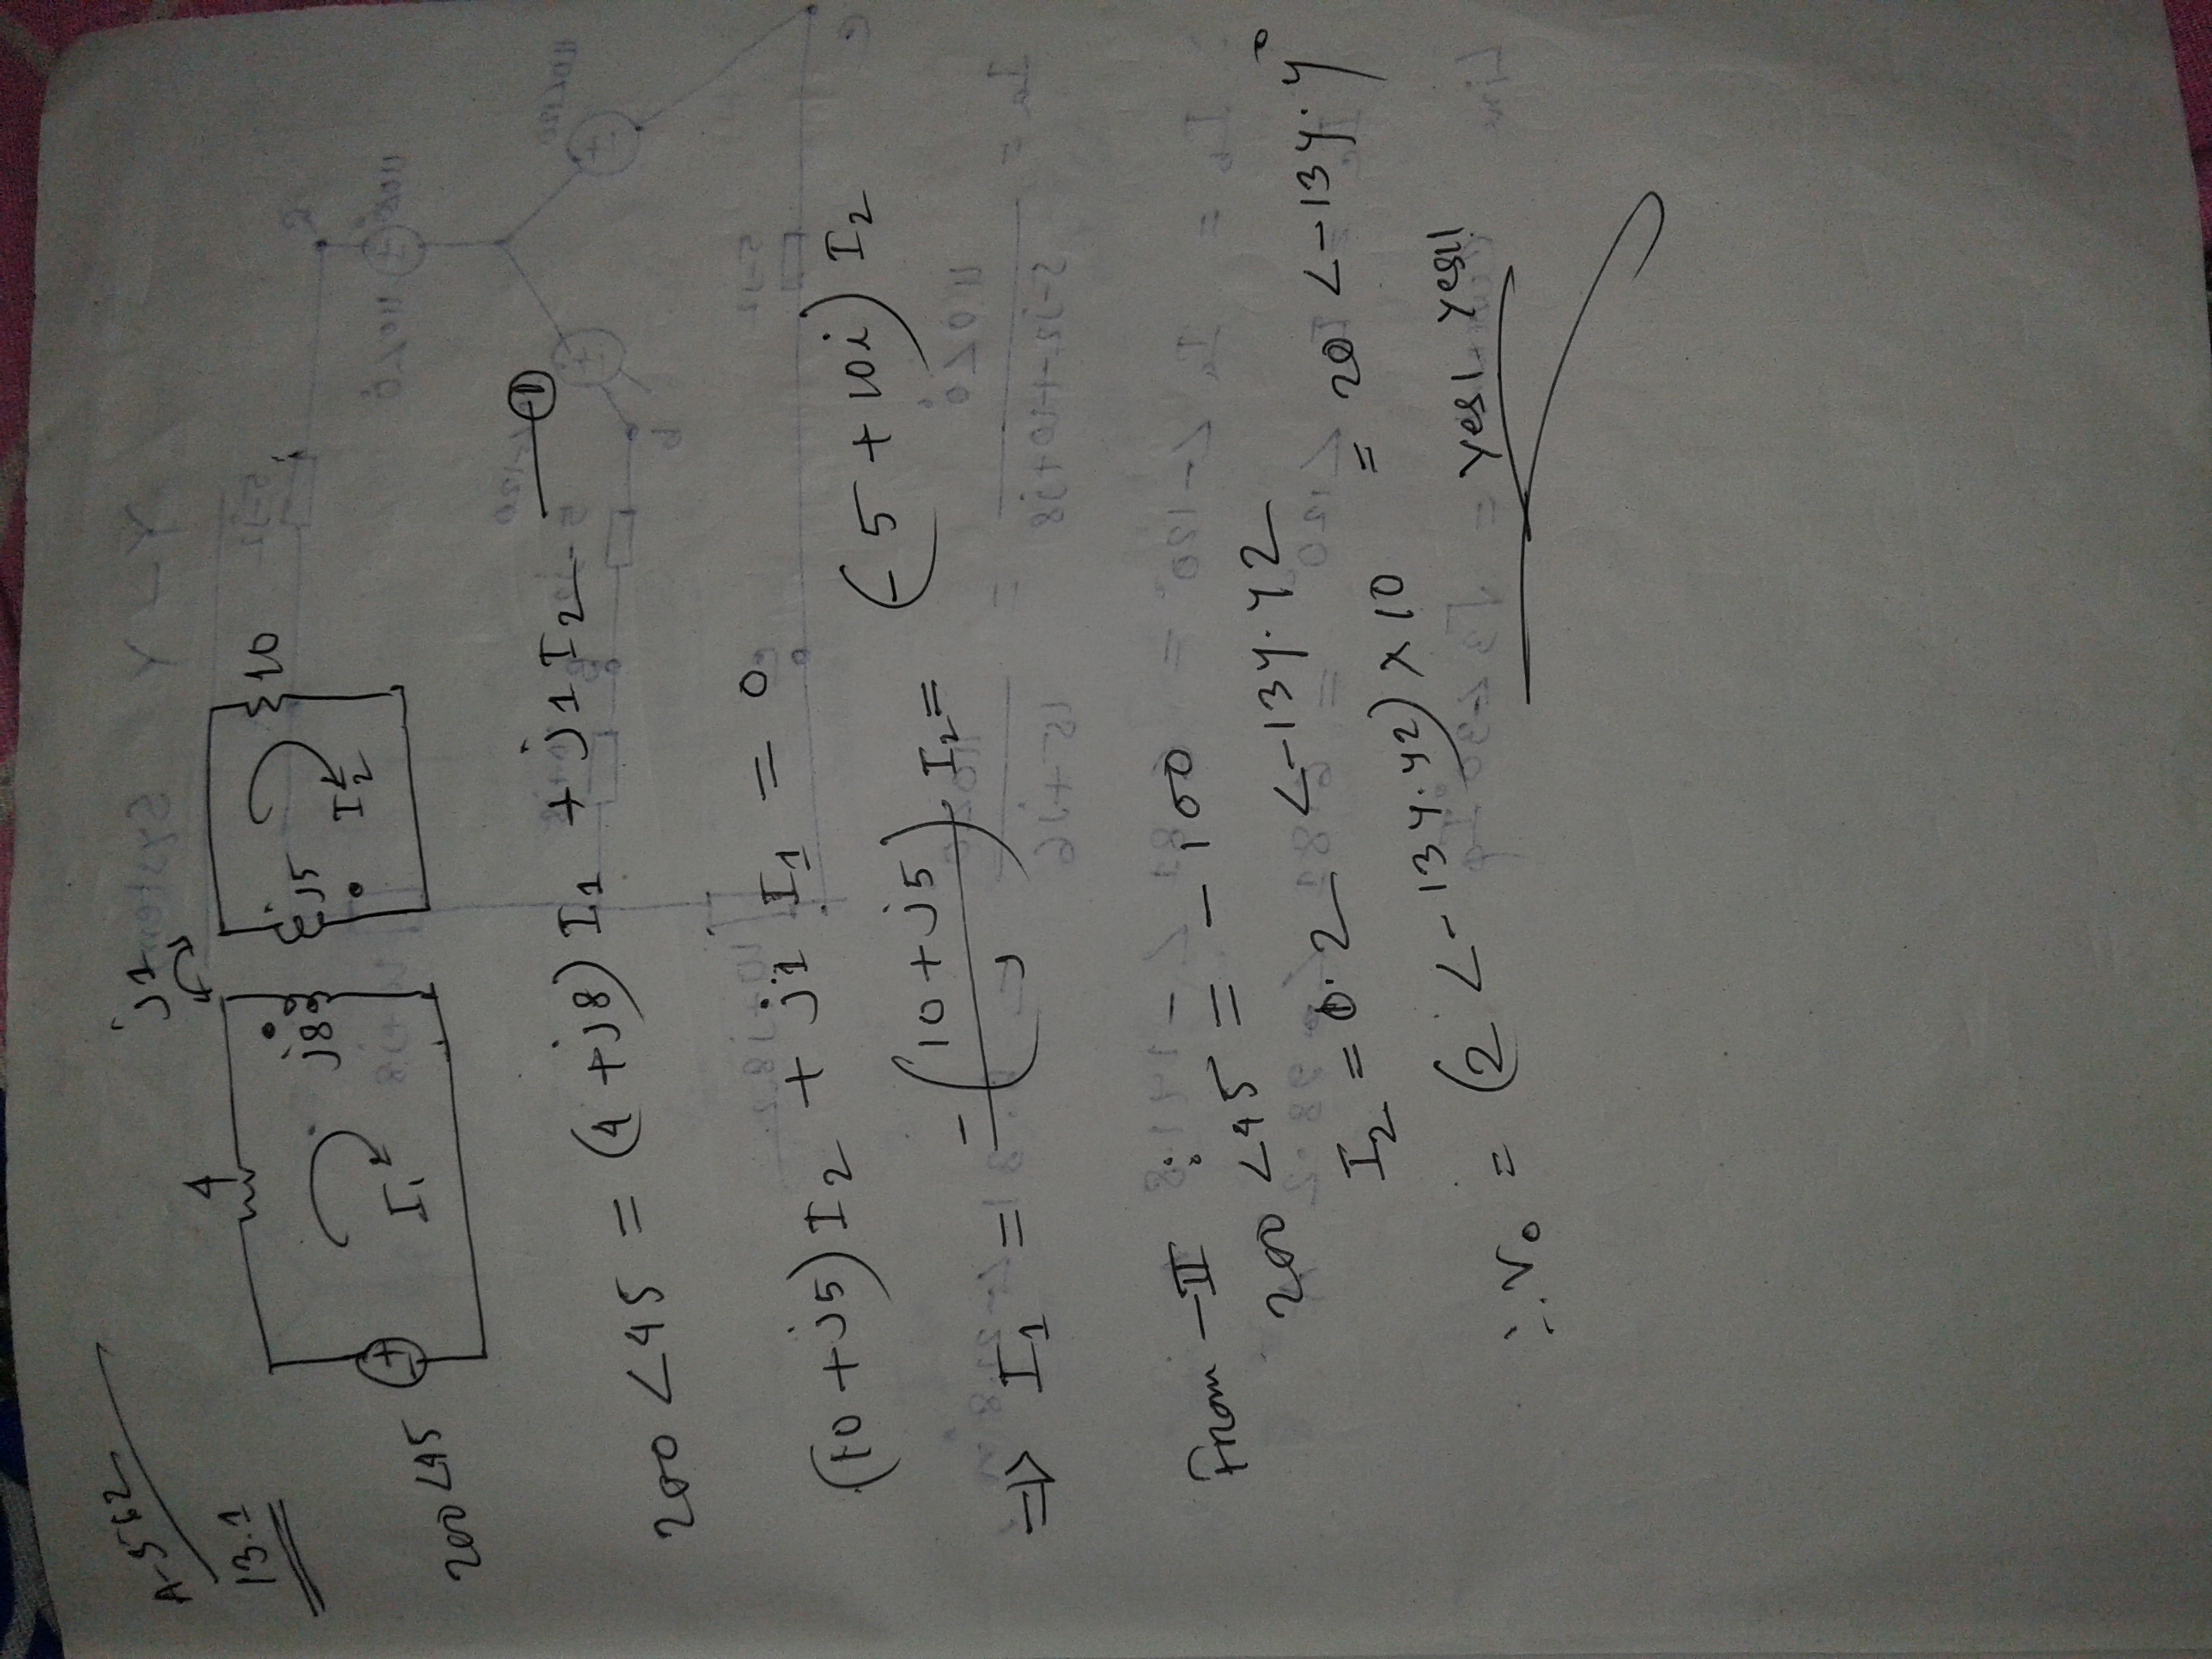 A-562
13.1
4
j1
j8
j5
10
I₁
I₂
200 ∠45
200 ∠45 = (4 + j8) I₁ + j1 I₂ — ①
(10 + j5) I₂ + j1 I₁ = 0
⇒ I₁ = -(10 + j5)/j I₂ = (-5 + 10i) I₂
From -II :
200 ∠45 = -100
I₂ = 0.2 ∠-134.42
∴ V₀ = (2 ∠-134.42) × 10 = 20 ∠-134.4°
Yes! Yes!!